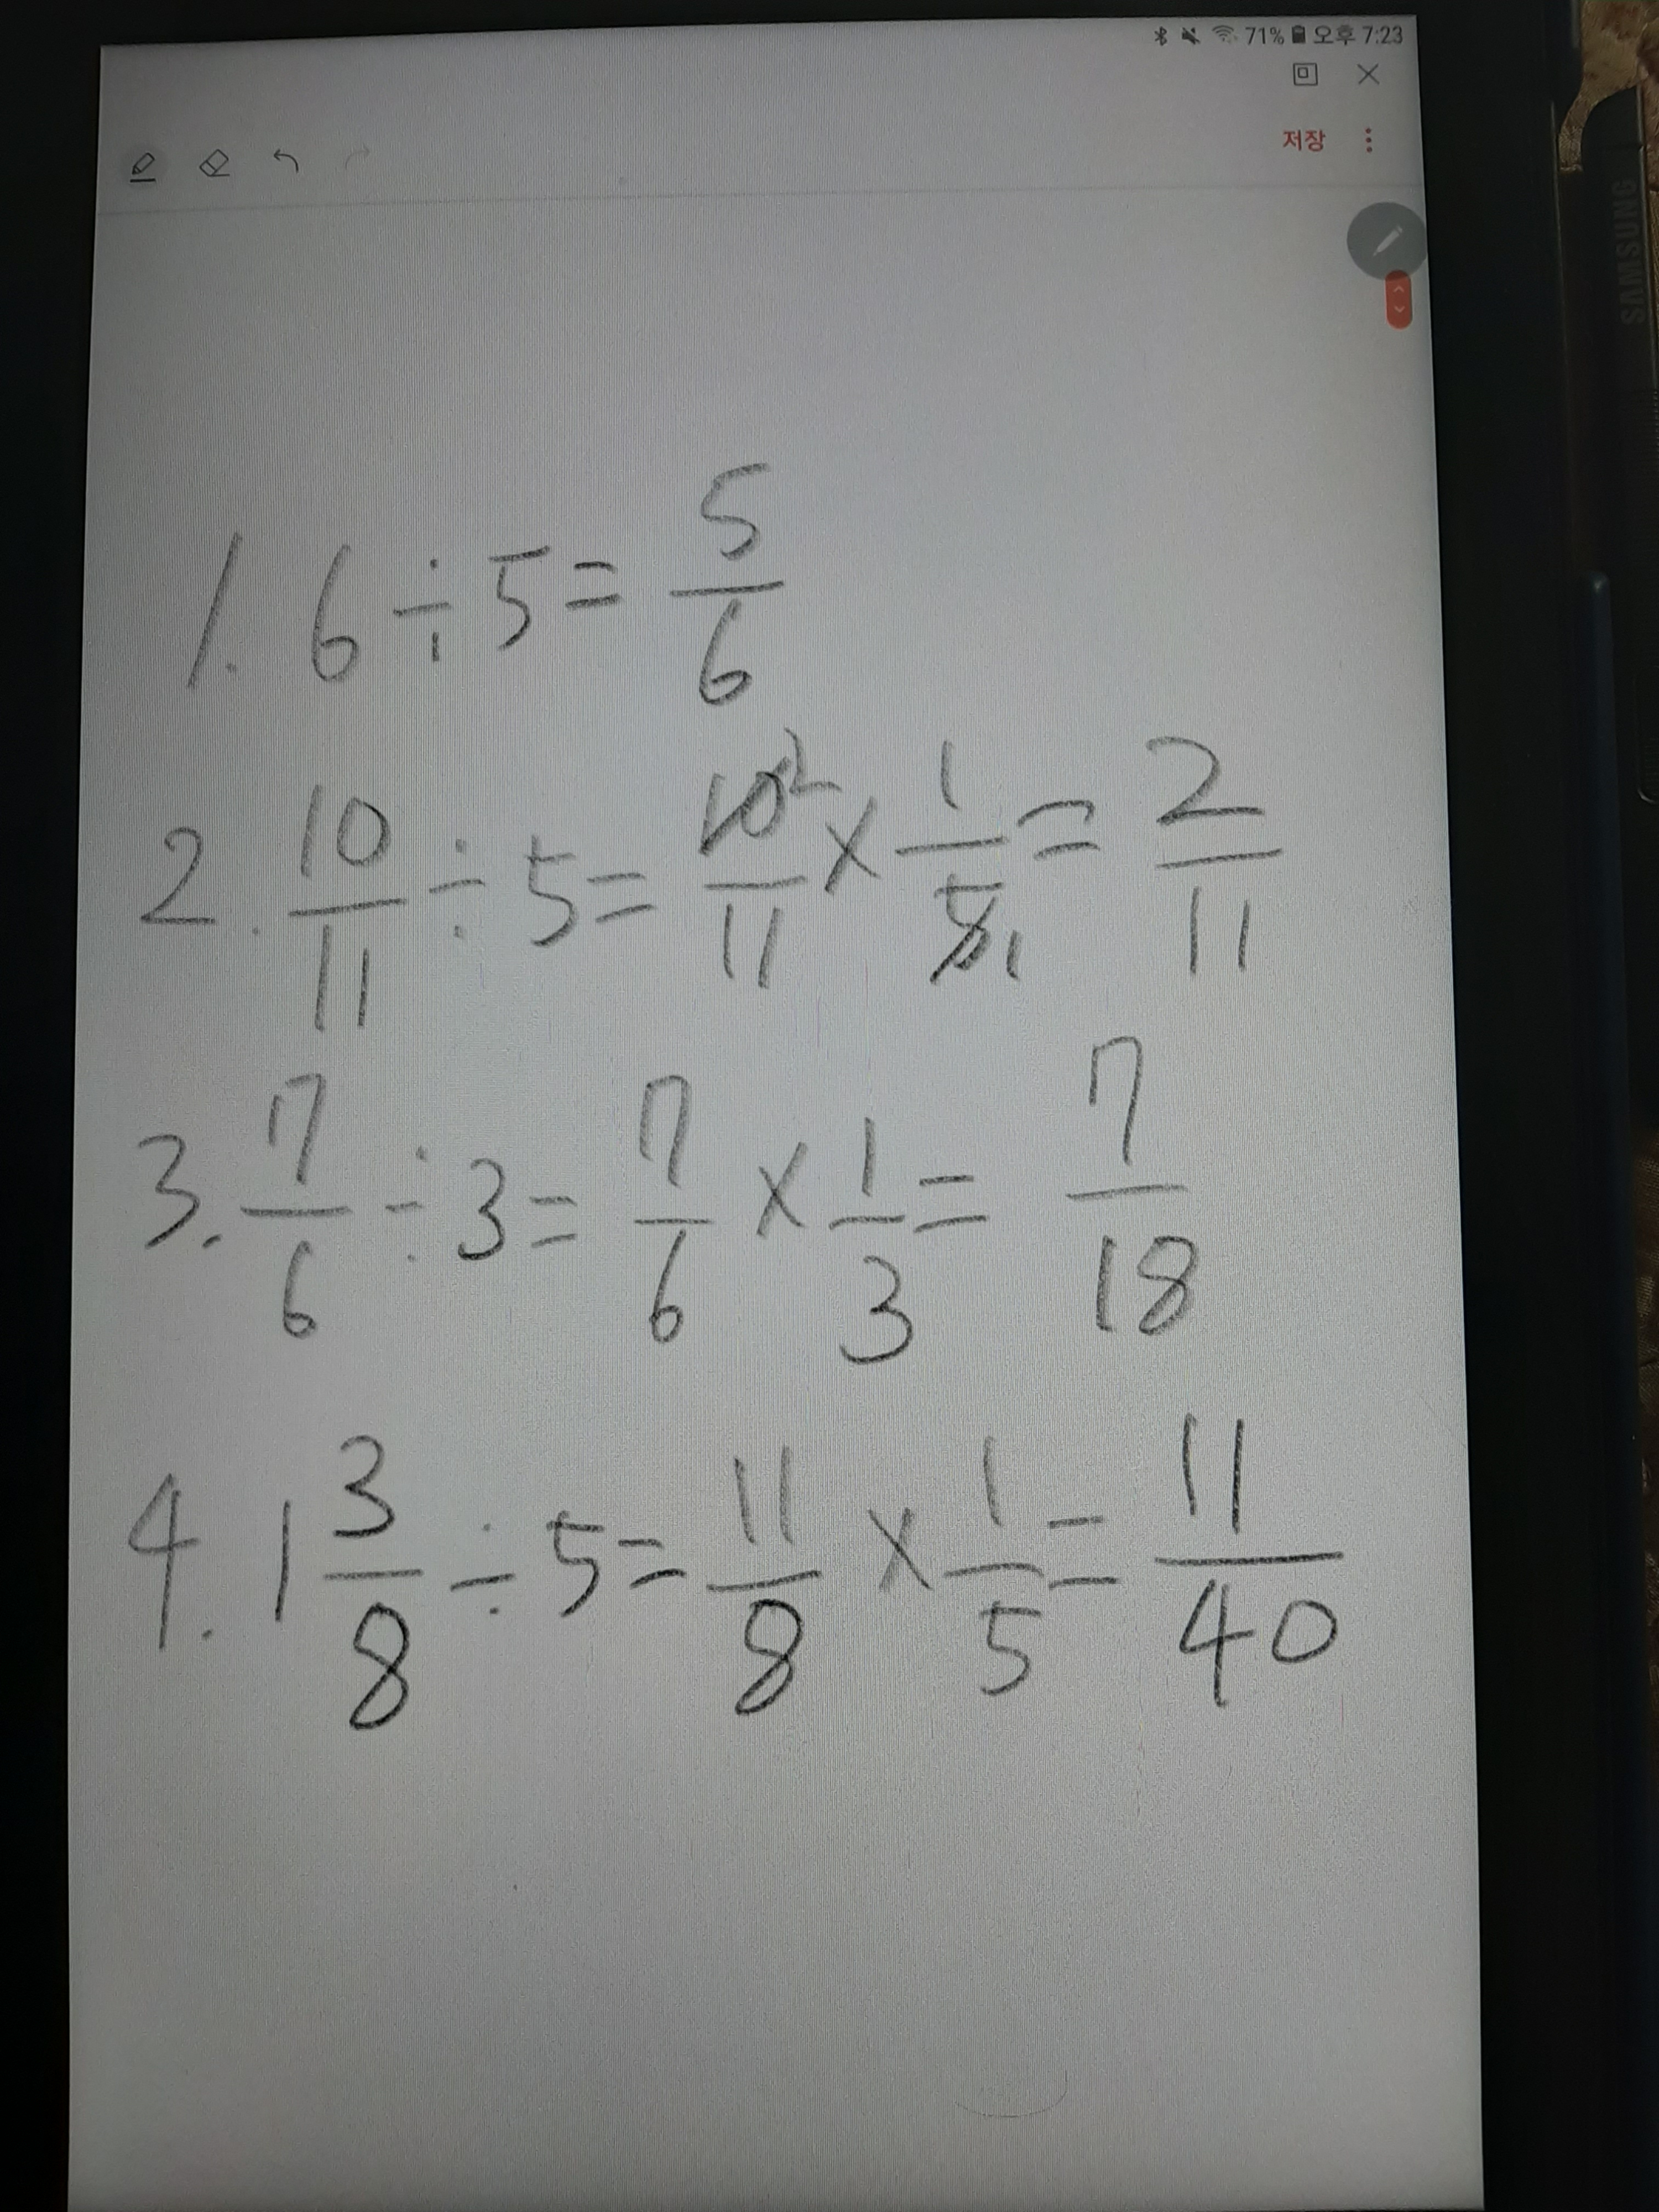 71% 오후 7:23
저장
SAMSUNG
1. 6 ÷ 5 = 5/6
2. 10/11 ÷ 5 = 10²/11 × 1/5₁ = 2/11
3. 7/6 ÷ 3 = 7/6 × 1/3 = 7/18
4. 1 3/8 ÷ 5 = 11/8 × 1/5 = 11/40